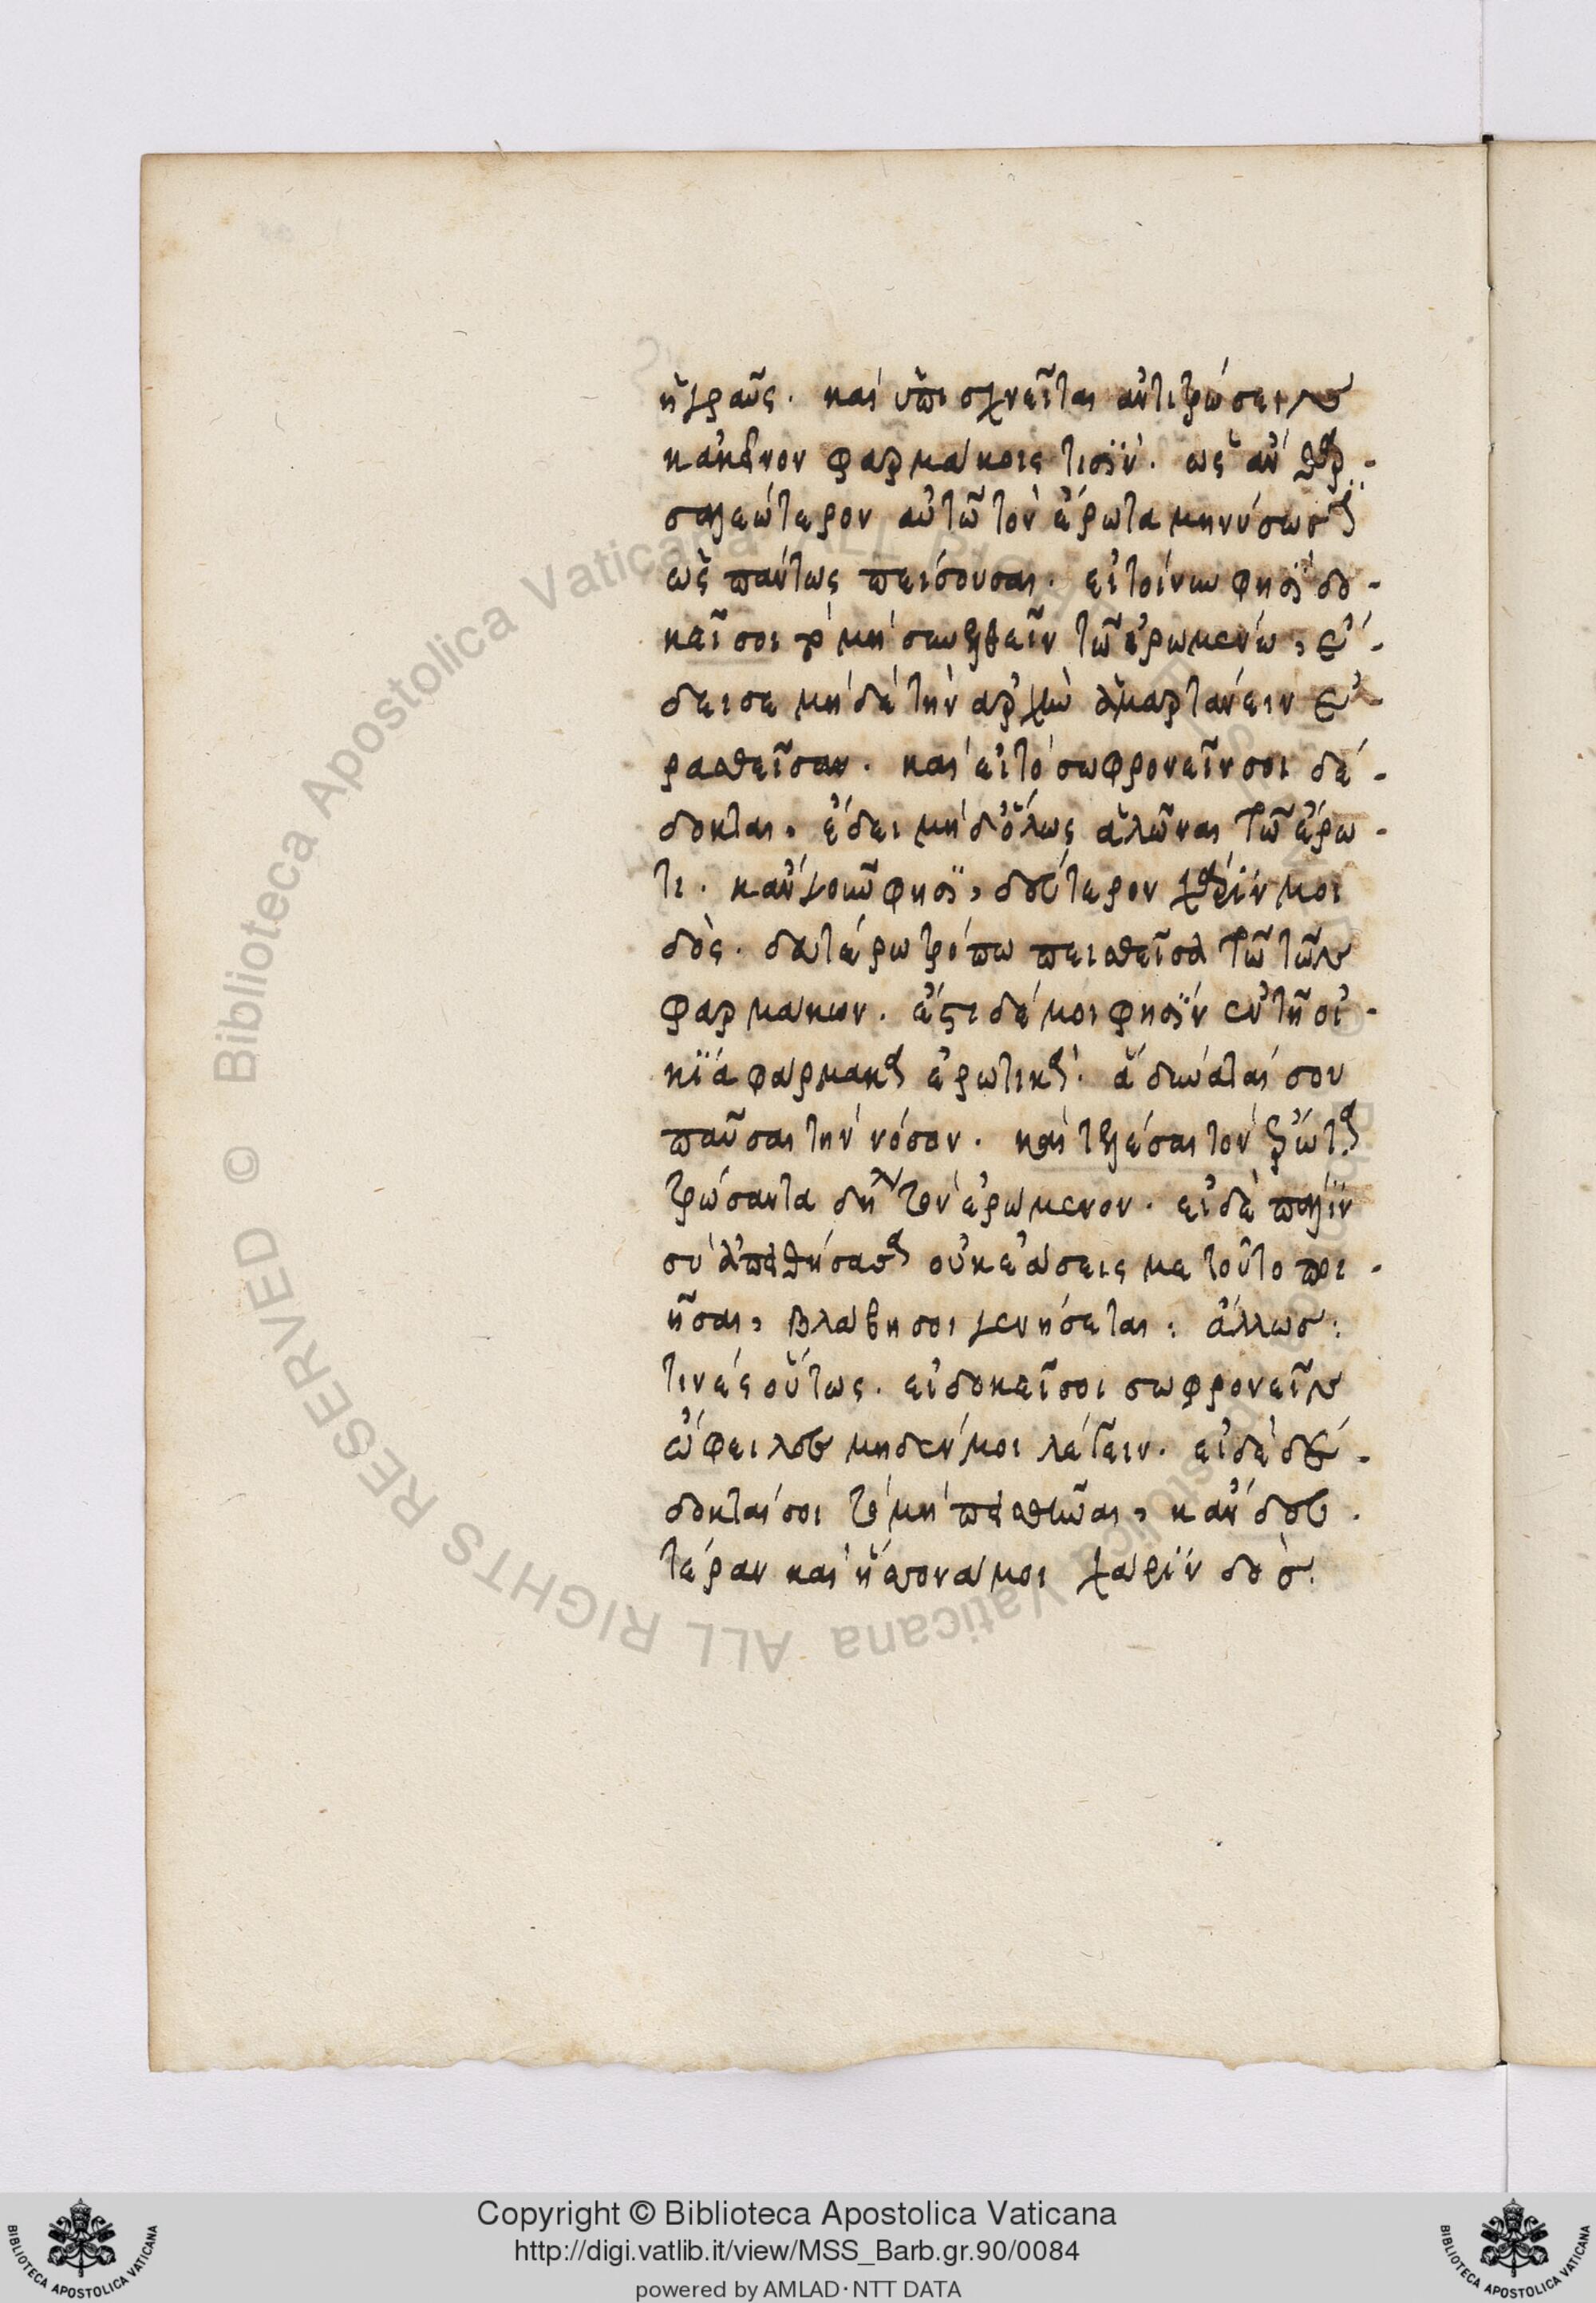 ἡ γραῦς. καὶ ὑπισχνεῖται ἀντιτρώσειν
κἀκεῖνον φαρμάκοις τισϊν. ὡς ἂν θαρ-
σαλεώτερον αὐτῶ τὸν ἔρωτα μηνύσωσϊν
ὡς πάντως πείσουσαι. εἰ τοίνυν φησϊ δο-
κεῖ σοι τὸ μὴ συνελθεῖν τῶ ἐρωμένω, ἔ-
δει σε μὴ δὲ τὴν ἀρχὴν ἁμαρτάνειν ἐ-
ρασθεῖσαν. καὶ εἰ τὸ σωφρονεῖν σοι δέ-
δοκται, ἔδει μὴ δ' ὅλως ἁλῶναι τῶ ἔρω-
τι. κἂν γοῦν φησϊ, δευτέραν χάρϊν μοι
δός. δευτέρω τρόπω πεισθεῖσα τῶ τῶν
φαρμάκων. ἔστι δέ μοι φησϊν ἐν τῆ οἰ-
κϊα φάρμακα ἐρωτικά. ἃ δύναταί σου
παῦσαι τὴν νόσον. καὶ τελέσαι τὸν ἔρωτα
τρώσαντα δὴ τὸν ἐρώμενον. εἰ δὲ πάλϊν
σὺ ἀπειθήσασα οὐκ ἐάσεις με τοῦτο ποι-
ῆσαι, βλάβη σοι γενήσεται: ἄλλως:
τινὲς οὕτως. εἰ δοκεῖ σοι σωφρονεῖν
ὤφειλες μηδέν μοι λέγειν. εἰ δὲ δέ-
δοκταί σοι τὸ μὴ πεισθῆναι, κἂν δευ-
τέραν καὶ ἥσσονά μοι χάρϊν δός.
Copyright © Biblioteca Apostolica Vaticana
http://digi.vatlib.it/view/MSS_Barb.gr.90/0084
powered by AMLAD·NTT DATA
BIBLIOTECA APOSTOLICA VATICANA
BIBLIOTECA APOSTOLICA VATICANA
© Biblioteca Apostolica Vaticana ALL RIGHTS RESERVED